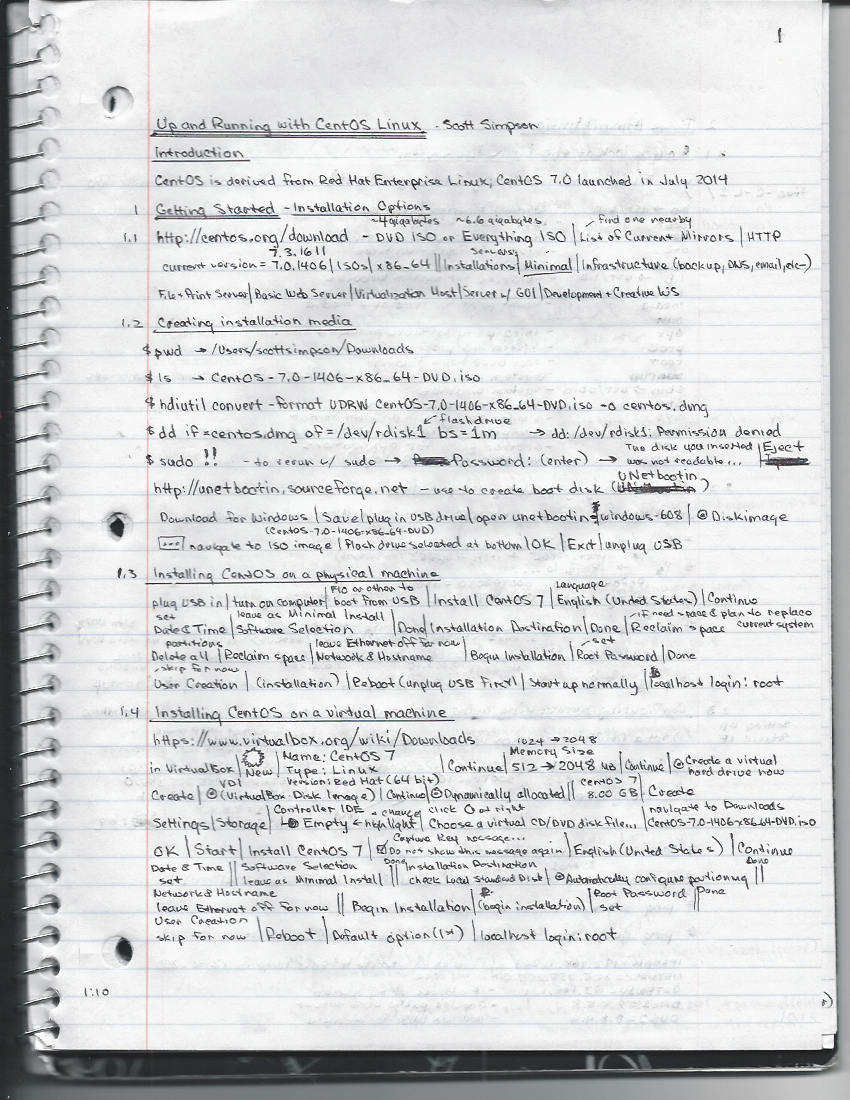 1
Up and Running with CentOS Linux - Scott Simpson
Introduction
CentOS is derived from Red Hat Enterprise Linux, CentOS 7.0 launched in July 2014
1 Getting Started - Installation Options
~4gigabytes ~6.6 gigabytes find one nearby
1.1 http://centos.org/download - DVD ISO or Everything ISO | List of Current Mirrors | HTTP
7.3.1611
current version = 7.0.1406 | ISOs | x86_64 || Installations | Minimal | Infrastructure (backup, DNS, email, etc-)
File + Print Server | Basic Web Server | Virtualization Host | Server w/ GUI | Development + Creative WS
1.2 Creating installation media
$ pwd → /Users/scottsimpson/Downloads
$ ls → CentOS-7.0-1406-x86_64-DVD.iso
$ hdiutil convert -format UDRW CentOS-7.0-1406-x86_64-DVD.iso -o centos.dmg
flash drive
$ dd if=centos.dmg of=/dev/rdisk1 bs=1m → dd: /dev/rdisk1: Permission denied
The disk you inserted | Eject
$ sudo !! - to rerun w/ sudo → Password: (enter) → was not readable...
UNetbootin
http://unetbootin.sourceforge.net - use to create boot disk ( )
Download for Windows | Save | plug in USB drive | open unetbootin-windows-608 | ⦿ Diskimage
(CentOS-7.0-1406-x86_64-DVD)
... navigate to ISO image | flash drive selected at bottom | OK | Exit | unplug USB
1.3 Installing CentOS on a physical machine
F10 or other to Language
plug USB in | turn on computer | boot from USB | Install CentOS 7 | English (United States) | Continue
set leave as Minimal Install if need space & plan to replace
Date & Time | Software Selection | Done | Installation Destination | Done | Reclaim space current system
partitions leave Ethernet off for now set
Delete all | Reclaim space | Network & Hostname | Begin Installation | Root Password | Done
skip for now
User Creation | (installation) | Reboot (unplug USB First) | Start up normally | localhost login: root
1.4 Installing CentOS on a virtual machine
https://www.virtualbox.org/wiki/Downloads 1024 → 2048
Name: CentOS 7 Memory Size
in VirtualBox | New | Type: Linux | Continue | 512 → 2048 MB | Continue | ⦿ Create a virtual hard drive now
VDI Version: Red Hat (64 bit) CentOS 7
Create | ⦿ (VirtualBox Disk Image) | Continue | ⦿ Dynamically allocated || 8.00 GB | Create
Controller IDE change click O at right navigate to Downloads
Settings | Storage | Empty ← highlight | Choose a virtual CD/DVD disk file... | CentOS-7.0-1406-x86_64-DVD.iso
Capture Key message...
OK | Start | Install CentOS 7 | ☑ Do not show this message again | English (United States) | Continue
Date & Time || Software Selection Done || Installation Destination Done
set || leave as Minimal Install || check Local Standard Disk | ⦿ Automatically configure partioning ||
Network & Hostname Root Password | Done
leave Ethernet off for now || Begin Installation | (begin installation) | set
User Creation
skip for now | Reboot | Default option (1st) | localhost login: root
1:10